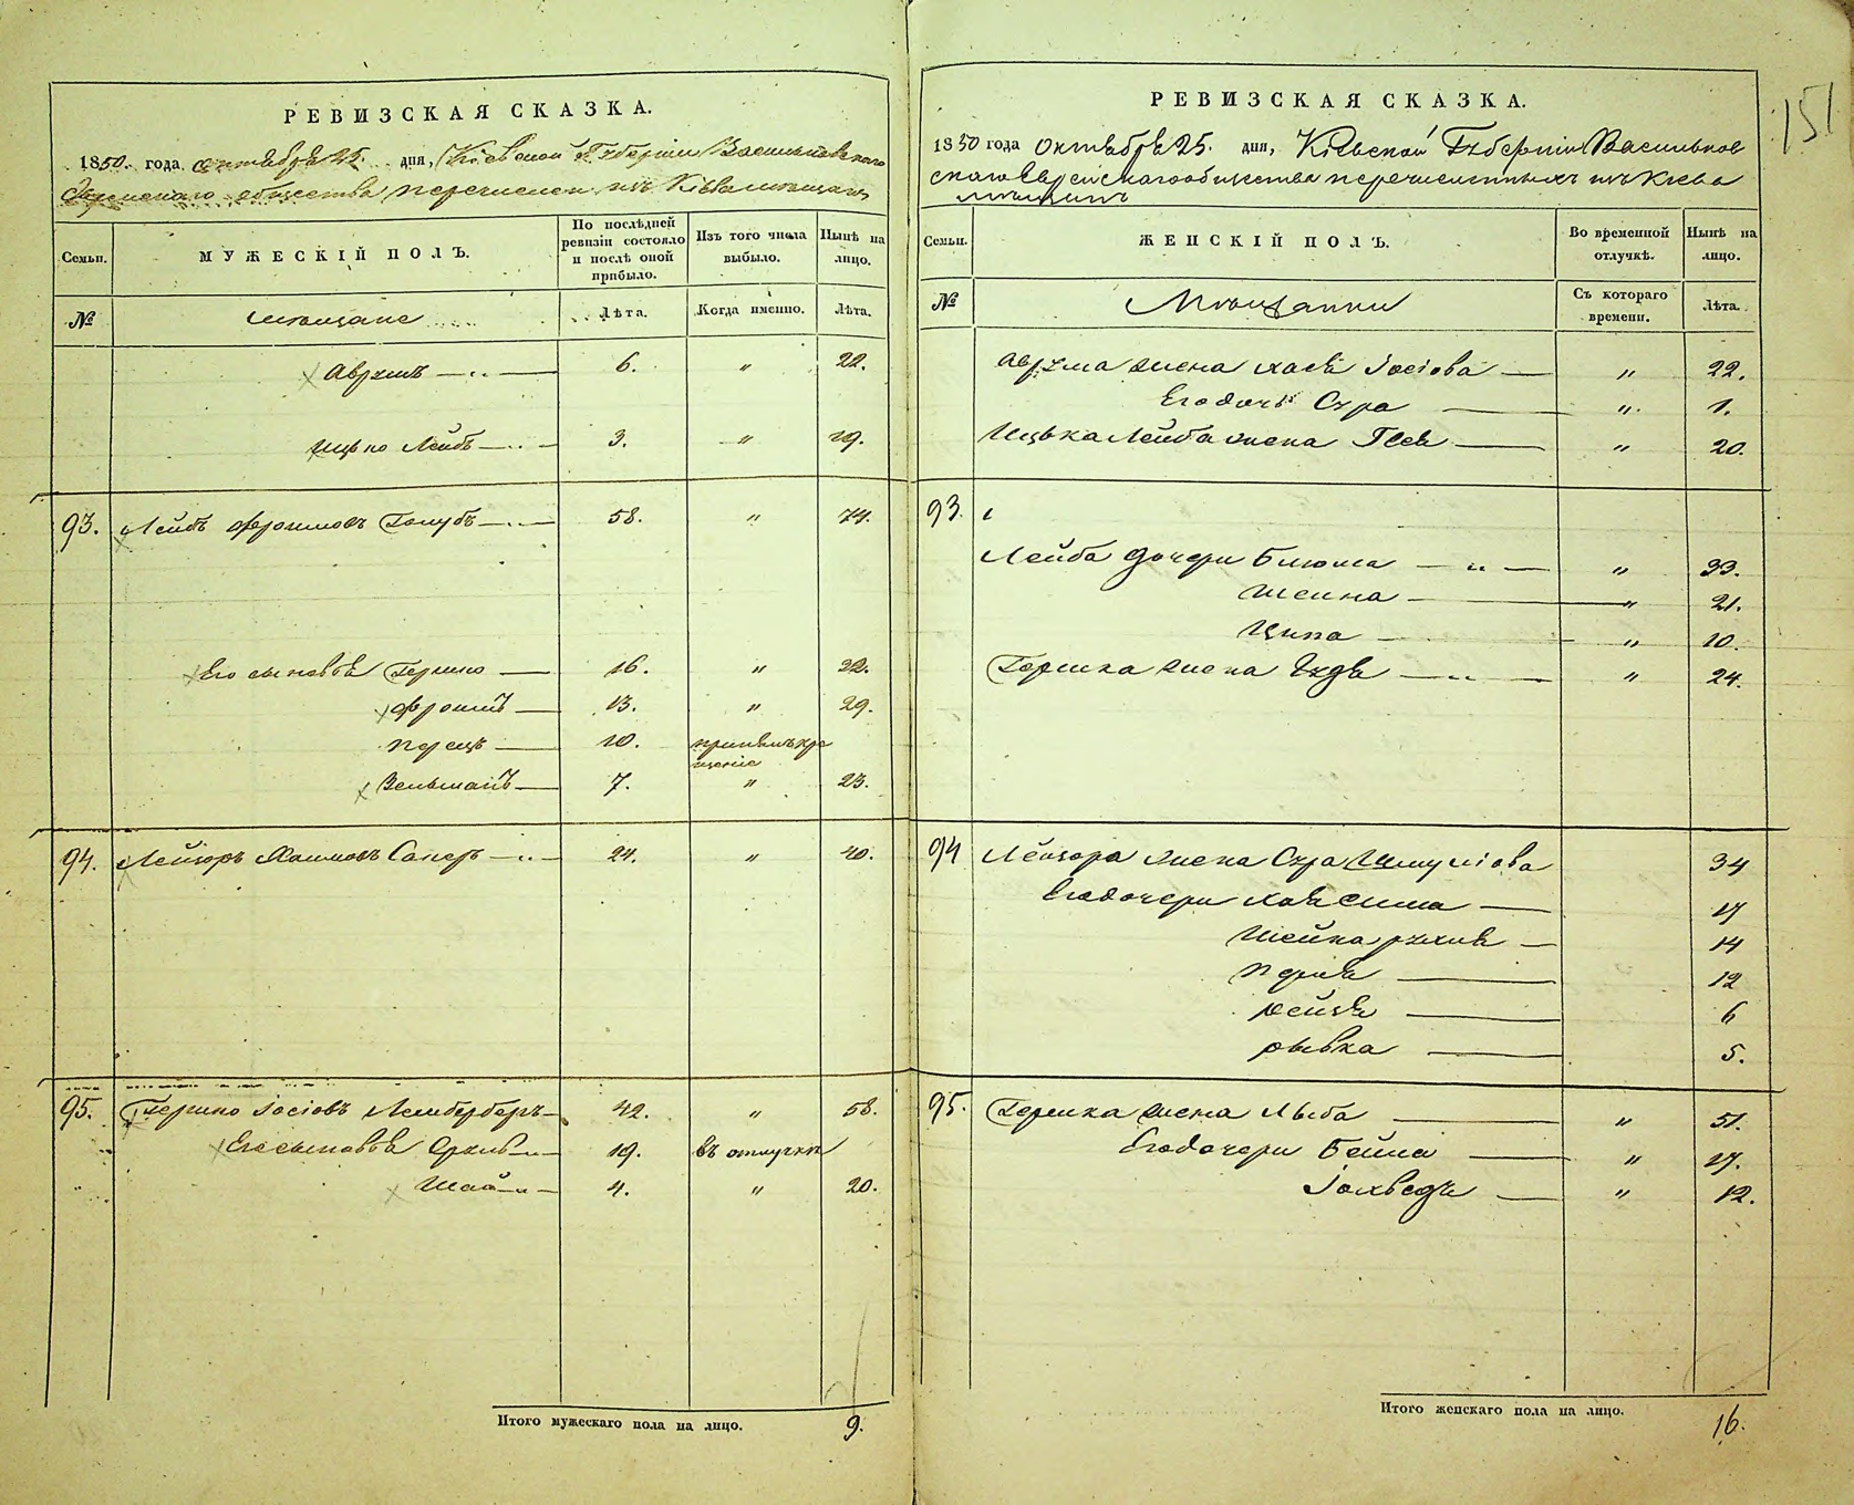 РЕВИЗСКАЯ СКАЗКА.
1850 года октября 25 дня, Кіевской Губерніи Васильковскаго
Еврейскаго общества перечислен изъ Кіева мѣщанъ
Семьи.
МУЖЕСКІЙ ПОЛЪ.
По послѣдней ревизіи состояло и послѣ оной прибыло.
Изъ того числа выбыло.
Нынѣ на лицо.
№
мѣщане
Лѣта.
Когда именно.
Лѣта.
Аврумъ 6. " 22.
Ицько Лейбъ 3. " 19.
93. Лейбъ Фроимовъ Голубъ 58. " 74.
Его сыновья Гершко 16. " 32.
Фроимъ 13. " 29.
Перецъ 10. принялъ кре
щеніе
Зельманъ 7. " 23.
94. Лейзоръ Хаимовъ Саперъ 24. " 40.
95. Гершко Іосіовъ Лемберберъ 42. " 58.
Его сыновья Срхив 19. въ отлучки
Шая 4. " 20.
Итого мужескаго пола на лицо. 9.
151
РЕВИЗСКАЯ СКАЗКА.
1850 года Октября 25. дня, Кіевской Губерніи Васильков
скаго Еврейскаго общества перечисленныхъ изъ Кіева
мѣщанъ
Семьи.
ЖЕНСКІЙ ПОЛЪ.
Во временной отлучкѣ.
Нынѣ на лицо.
№
Мѣщанки
Съ котораго времени.
Лѣта.
Аврума жена Хася Іосіова " 22.
Его дочь Сура " 1.
Ицька Лейба жена Песя " 20.
93.
Лейба дочери Блюма " 33.
Шейна " 21.
Ципа " 10.
Гершка жена Гудя " 24.
94 Лейзора жена Сура Шмуліова 34
Его дочери Хая Сима 17
Шейна Рухля 14
Перля 12
Рейзя 6
Рывка 5.
95. Гершка жена Лыба " 51.
Его дочери Бейла " 17.
Іохведъ " 12.
Итого женскаго пола на лицо. 16.